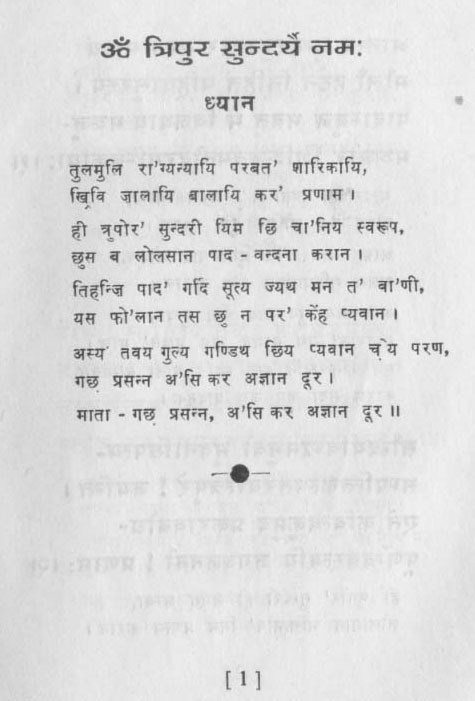 ॐ त्रिपुर सुन्दर्यै नम:
ध्यान
तुलमुलि रा'ग्यन्यायि परबत' णारिकायि,
खि्रवि ज़ालायि बालायि कर' प्रणाम।
ही त्रुपोर' सुन्दरी यिम छि चा'निय स्वरूप,
छुस ब लोलसान पाद - वन्दना करान।
तिहन्ज़ि पाद' गर्दि सूत्य ज्यथ मन त' वा'णी,
यस फो'लान तस छु न पर' केंह प्यवान।
अस्य तवय गुल्य गण्डिथ छिय प्यवान च़्ये परण,
गछ़ प्रसन्न अ'सि कर अज्ञान दूर।
माता - गछ़ प्रसन्न, अ'सि कर अज्ञान दूर॥
[ 1 ]